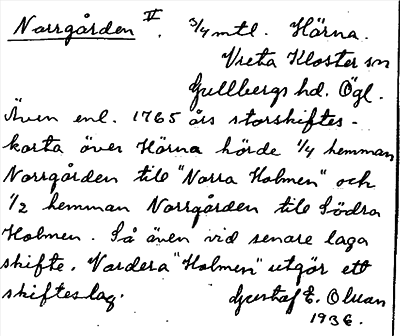 Norrgården II. 3/4 mtl. Härna.
Vreta Kloster sn
Gullbergs hd. Ögl.
Även enl. 1765 års storskiftes-
karta över Härna hörde 1/4 hemman
Norrgården till "Norra Holmen" och
1/2 hemman Norrgården till Södra
Holmen. Så även vid senare laga
skifte. Vardera "Holmen" utgör ett
skifteslag.
Gustaf E. Olsson
1936.